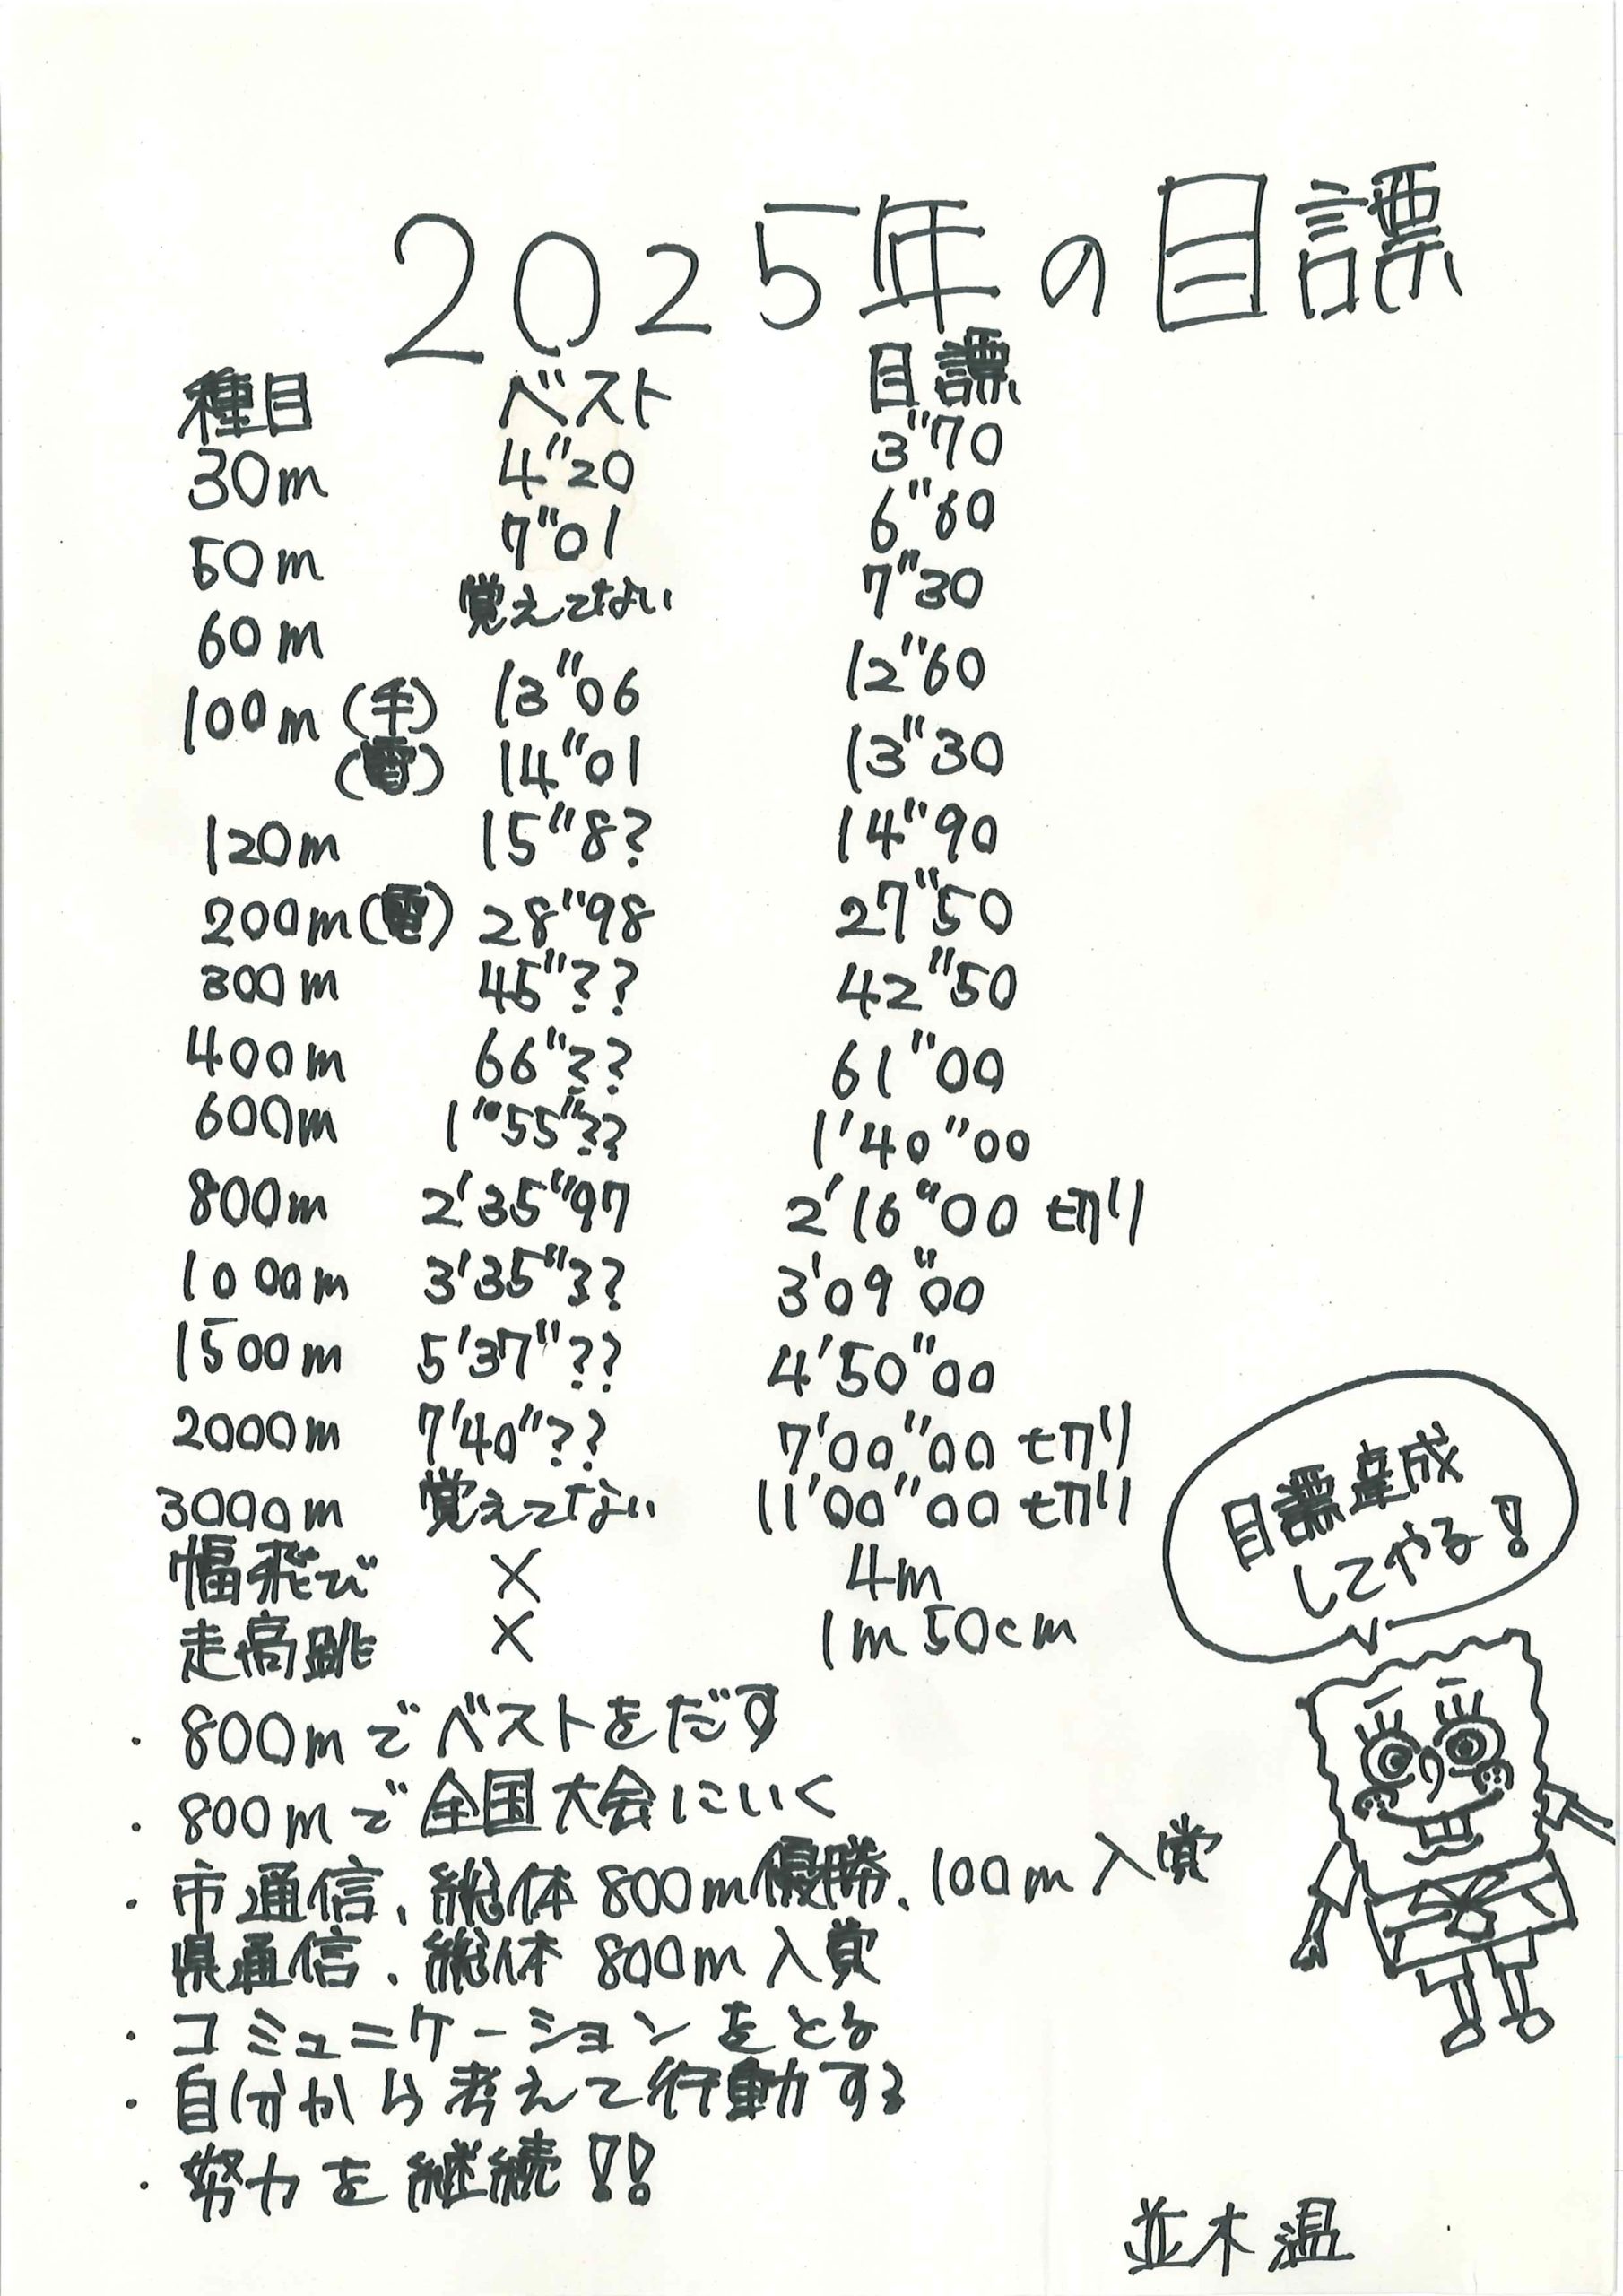 2025年の目譚
種目 ベスト 目譚
30m 4"20 3"70
50m 7"01 6"60
60m 覚えてない 7"30
100m(手) 13"06 12"60
(電) 14"01 13"30
120m 15"8? 14"90
200m(電) 28"98 27"50
300m 45"?? 42"50
400m 66"?? 61"00
600m 1'55"?? 1'40"00
800m 2'35"97 2'16"00 切り
1000m 3'35"?? 3'09"00
1500m 5'37"?? 4'50"00
2000m 7'40"?? 7'00"00 切り
3000m 覚えてない 11'00"00 切り
幅飛び × 4m
走高跳 × 1m50cm
目譚達成
してやる!
・800mでベストをだす
・800mで全国大会にいく
・市通信、総体800m優勝、100m入賞
県通信、総体800m入賞
・コミュニケーションをとる
・自分から考えて行動する
・努力を継続!!
並木温